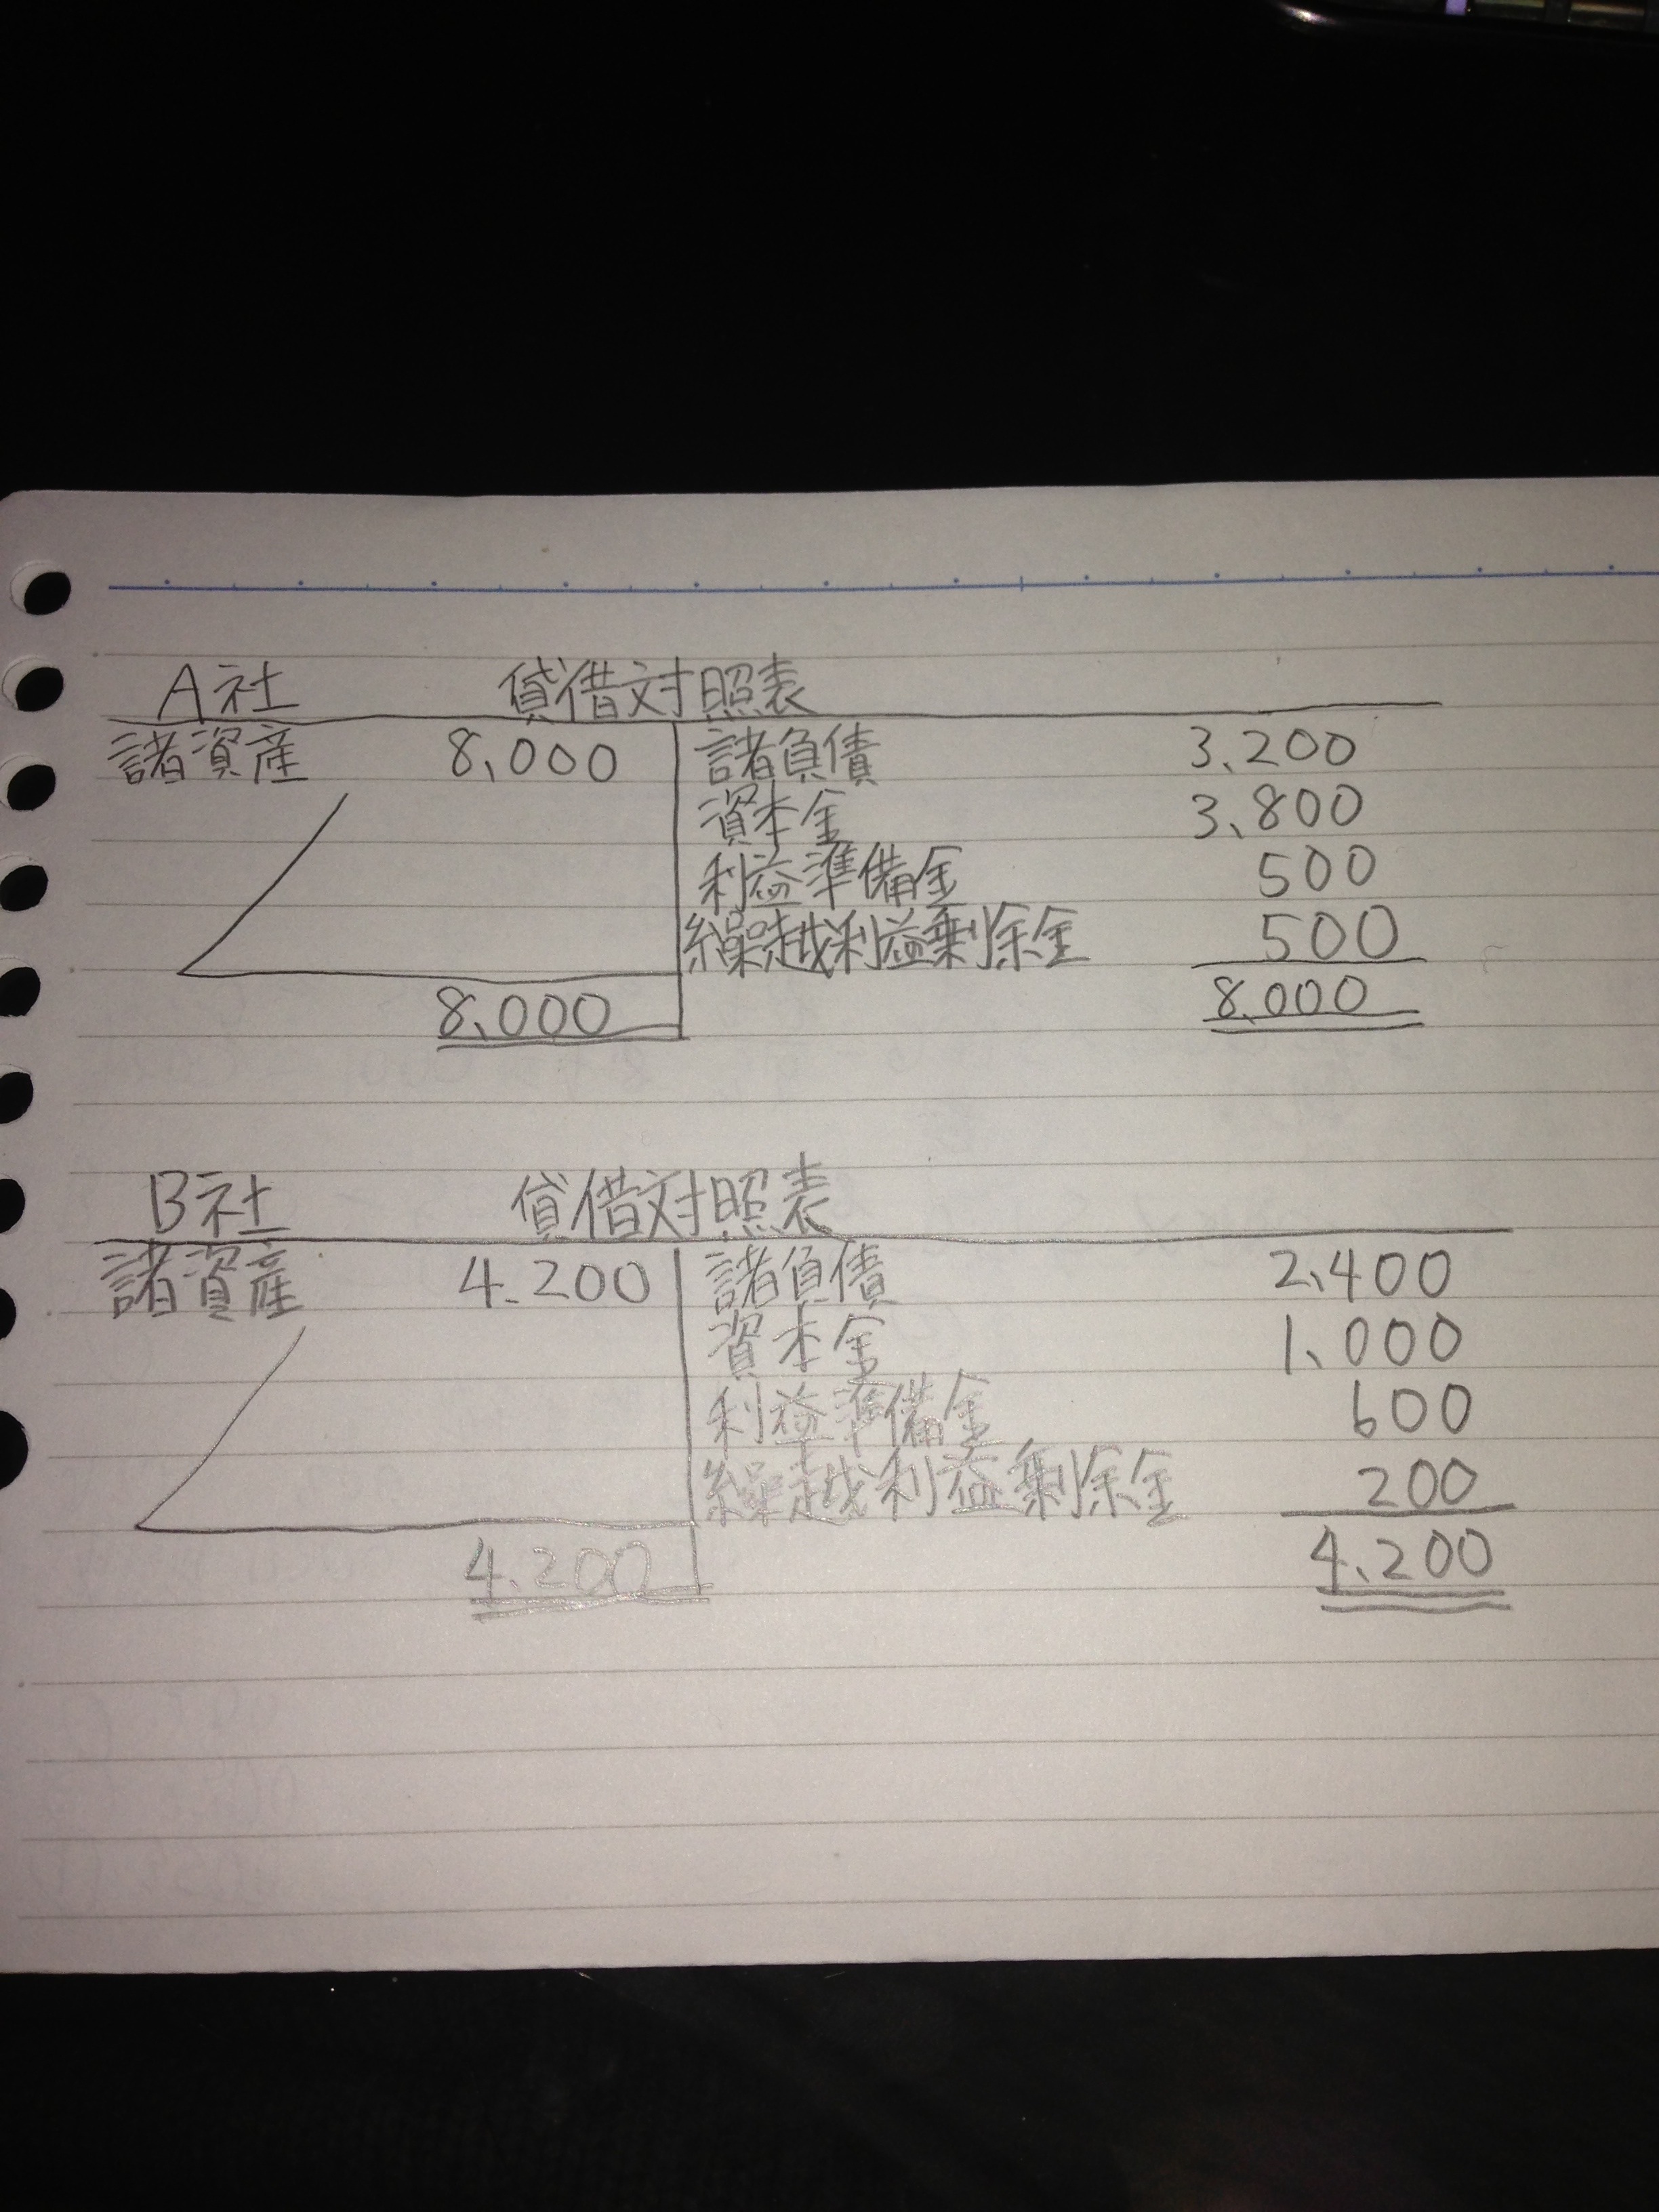 A社 貸借対照表
諸資産 8,000 諸負債 3,200
資本金 3,800
利益準備金 500
繰越利益剰余金 500
8,000 8,000
B社 貸借対照表
諸資産 4.200 諸負債 2,400
資本金 1,000
利益準備金 600
繰越利益剰余金 200
4,200 4,200